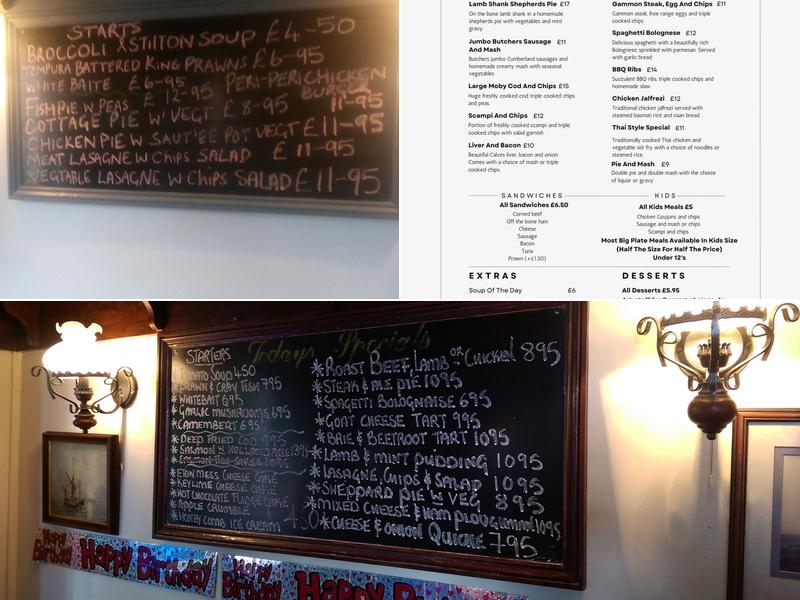 STARTS
BROCCOLI & STILTON SOUP £4-50
TEMPURA BATTERED KING PRAWNS £6-95
WHITE BAITE £6-95
FISHPIE W PEAS £12-9
COTTAGE PIE W VEG 11-95
CHICKEN PIE W SAUTEE VEGT £11-95
MEAT LASAGNE W CHIPS SALAD £11-95
VEGTABLE LASAGNE W CHIPS SALAD £11-95
Lamb Shank Shepherds Pie £17
On the bone lamb shank in a homemade
shepherds pie with vegetables and mint
gravy
Jumbo Butchers Sausage £11
And Mash
Butchers jumbo Cumberland sausages and
homemade creamy mash with seasonal
vegetables
Large Moby Cod And Chips £15
Huge freshly cooked cod, triple cooked chips
and peas.
Scampi And Chips £12
Portion of freshly cooked scampi and triple
cooked chips with salad garnish
Liver And Bacon £10
Beautiful Calves liver, bacon and onion
Comes with a choice of mash or triple
cooked chips.
Gammon Steak, Egg And Chips £11
Gammon steak, free range eggs and triple
cooked chips
Spaghetti Bolognese £12
Delicious spaghetti with a beautifully rich
Bolognese, sprinkled with parmesan. Served
with garlic bread
BBQ Ribs £14
Succulent BBQ ribs, triple cooked chips and
homemade slaw
Chicken Jalfrezi £12
Traditional chicken jalfrezi served with
steamed basmati rice and naan bread
Thai Style Special £11
Traditionally cooked Thai chicken and
vegetable stir fry with a choice of noodles or
steamed rice
Pie And Mash £9
Double pie and double mash with the choice
of liquor or gravy
SANDWICHES
All Sandwiches £6.50
Corned beef
Off the bone ham
Cheese
Sausage
Bacon
Tuna
Prawn (+£1.50)
KIDS
All Kids Meals £5
Chicken Goujons and chips
Sausage and mash or chips
Scampi and chips
Most Big Plate Meals Available In Kids Size
(Half The Size For Half The Price)
Under 12's
EXTRAS
Soup Of The Day £6
DESSERTS
All Desserts £5.95
Todays Specials
STARTERS
*TOMATO SOUP 4.50
*PRAWN & CRAY FISH 7.95
*WHITEBAIT 695
*GARLIC MUSHROOMS 695
*CAMEMBERT 695
*DEEP FRIED COD 995
*SALMON W HOLLANDAISE 1395
*ETON MESS CHEESE CAKE
*KEYLIME CHEESE CAKE
*HOT CHOCOLATE FUDGE CAKE
*APPLE CRUMBLE
*HONEY COMB ICE CREAM 4.50
*ROAST BEEF, LAMB OR CHICKEN 895
*STEAK & ALE PIE 1095
*SPAGETTI BOLOGNAISE 695
*GOAT CHEESE TART 995
*BRIE & BEETROOT TART 1095
*LAMB & MINT PUDDING 1095
*LASAGNE, CHIPS & SALAD 1095
*SHEPPARD PIE W VEG 895
*MIXED CHEESE & HAM PLOUGHMAN 1095
*CHEESE & ONION QUICHE 795
Happy Birthday
Happy Birthday
Happy Birthday
Happy